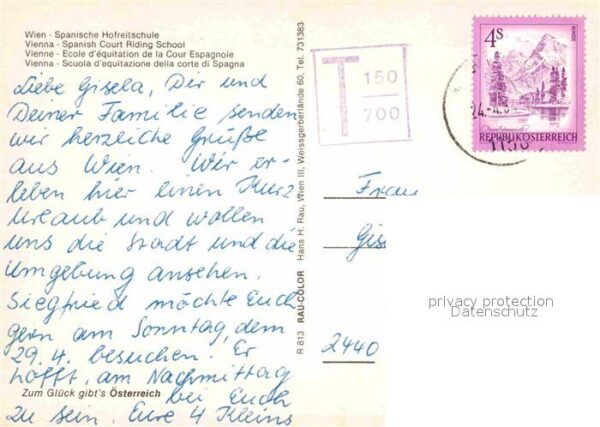 Wien - Spanische Hofreitschule
Vienna - Spanish Court Riding School
Vienne - Ecole d'équitation de la Cour Espagnole
Vienna - Scuola d'equitazione della corte di Spagna
Liebe Gisela, Dir und
Deiner Familie senden
wir herzliche Grüße
aus Wien. Wir er-
leben hier einen Kurz
Urlaub und wollen
uns die Stadt und die
Umgebung ansehen.
Siegfried möchte Euch
gern am Sonntag, dem
29.4. besuchen. Er
hofft, am Nachmittag
bei Euch
zu sein. Eure 4 Kleins
Zum Glück gibt's Österreich
R 813 RAU-COLOR Hans H. Rau, Wien III, Weissgerberlände 60, Tel. 731383
T 150
700
4S
REPUBLIK ÖSTERREICH
24.-4.
1150
Frau
Gis
2440
privacy protection
Datenschutz